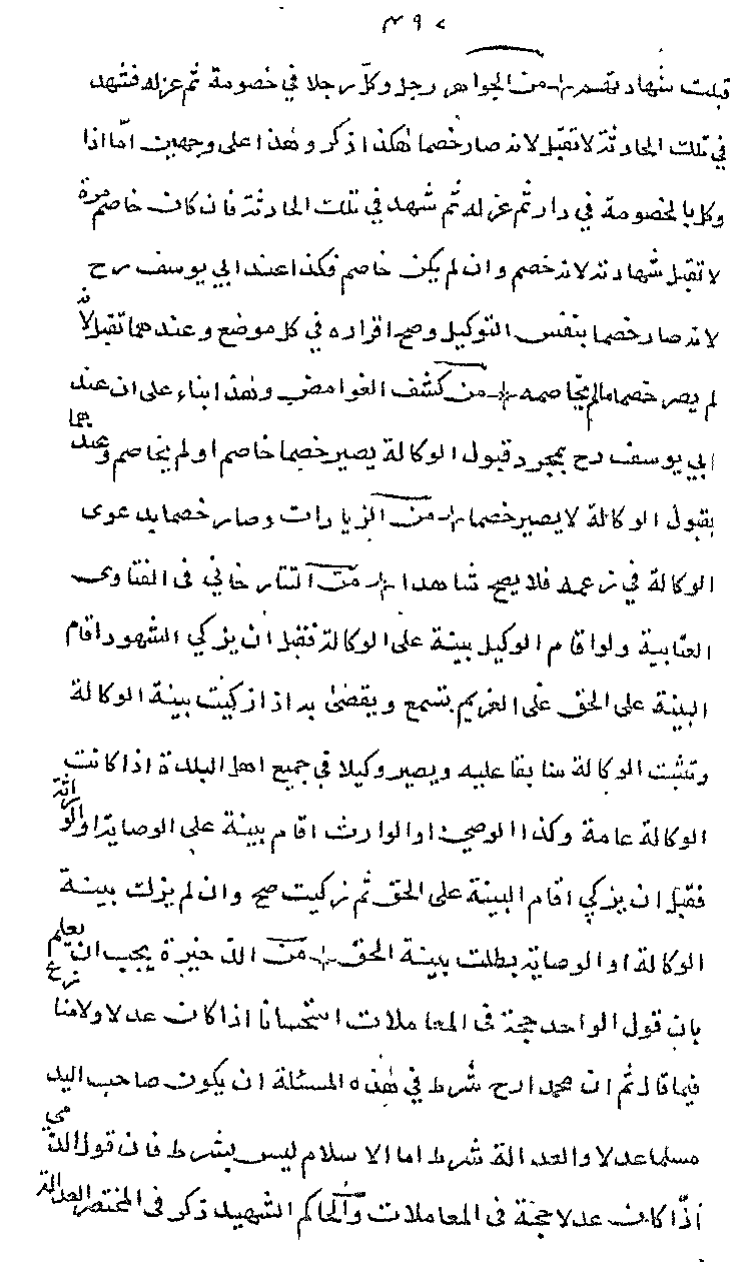 قبلت شهادتهم من الجواهر رجل وكل رجلا في خصومة ثم عزله فشهد
في تلك الحادثة لا تقبل لانه صار خصما هكذا ذكر وهذا على وجهين اما اذا
وكل بالخصومة في دار ثم عزله ثم شهد في تلك الحادثة فان كان خاصم مرة
لا تقبل شهادته لانه خصم وان لم يكن خاصم فكذا عند ابي يوسف رح
لانه صار خصما بنفس التوكيل وصح اقراره في كل موضع وعندهما تقبل لانه
لم يصر خصما مالم يخاصمه من كشف الغوامض وهذا بناء على ان عند
ابي يوسف رح بمجرد قبول الوكالة يصير خصما خاصم او لم يخاصم وعندهما
بقبول الوكالة لا يصير خصما من الزيارات وصار خصما بدعوى
الوكالة في زعمه فلا يصح شاهدا من التتارخاني فى الفتاوى
العتابية ولو اقام الوكيل بينة على الوكالة فقبل ان يزكي الشهود اقام
البينة على الحق على الغريم تسمع ويقضى به اذا زكيت بينة الوكالة
وتثبت الوكالة سابقا عليه ويصير وكيلا في جميع اهل البلدة اذا كانت
الوكالة عامة وكذا الوصي او الوارث اقام بينة على الوصاية او الوراثة
فقبل ان يزكي اقام البينة على الحق ثم زكيت صح وان لم يزك بينة
الوكالة او الوصاية بطلت بينة الحق من الذخيرة يجب ان يعلم
بان قول الواحد حجة فى المعاملات استحسانا اذا كان عدلا ولا منازع
فيما قال ثم ان محمدا رح شرط في هذه المسئلة ان يكون صاحب اليد
مسلما عدلا والعدالة شرط اما الاسلام ليس بشرط فان قول الذمي
اذا كان عدلا حجة فى المعاملات والحاكم الشهيد ذكر فى المختصر العدالة